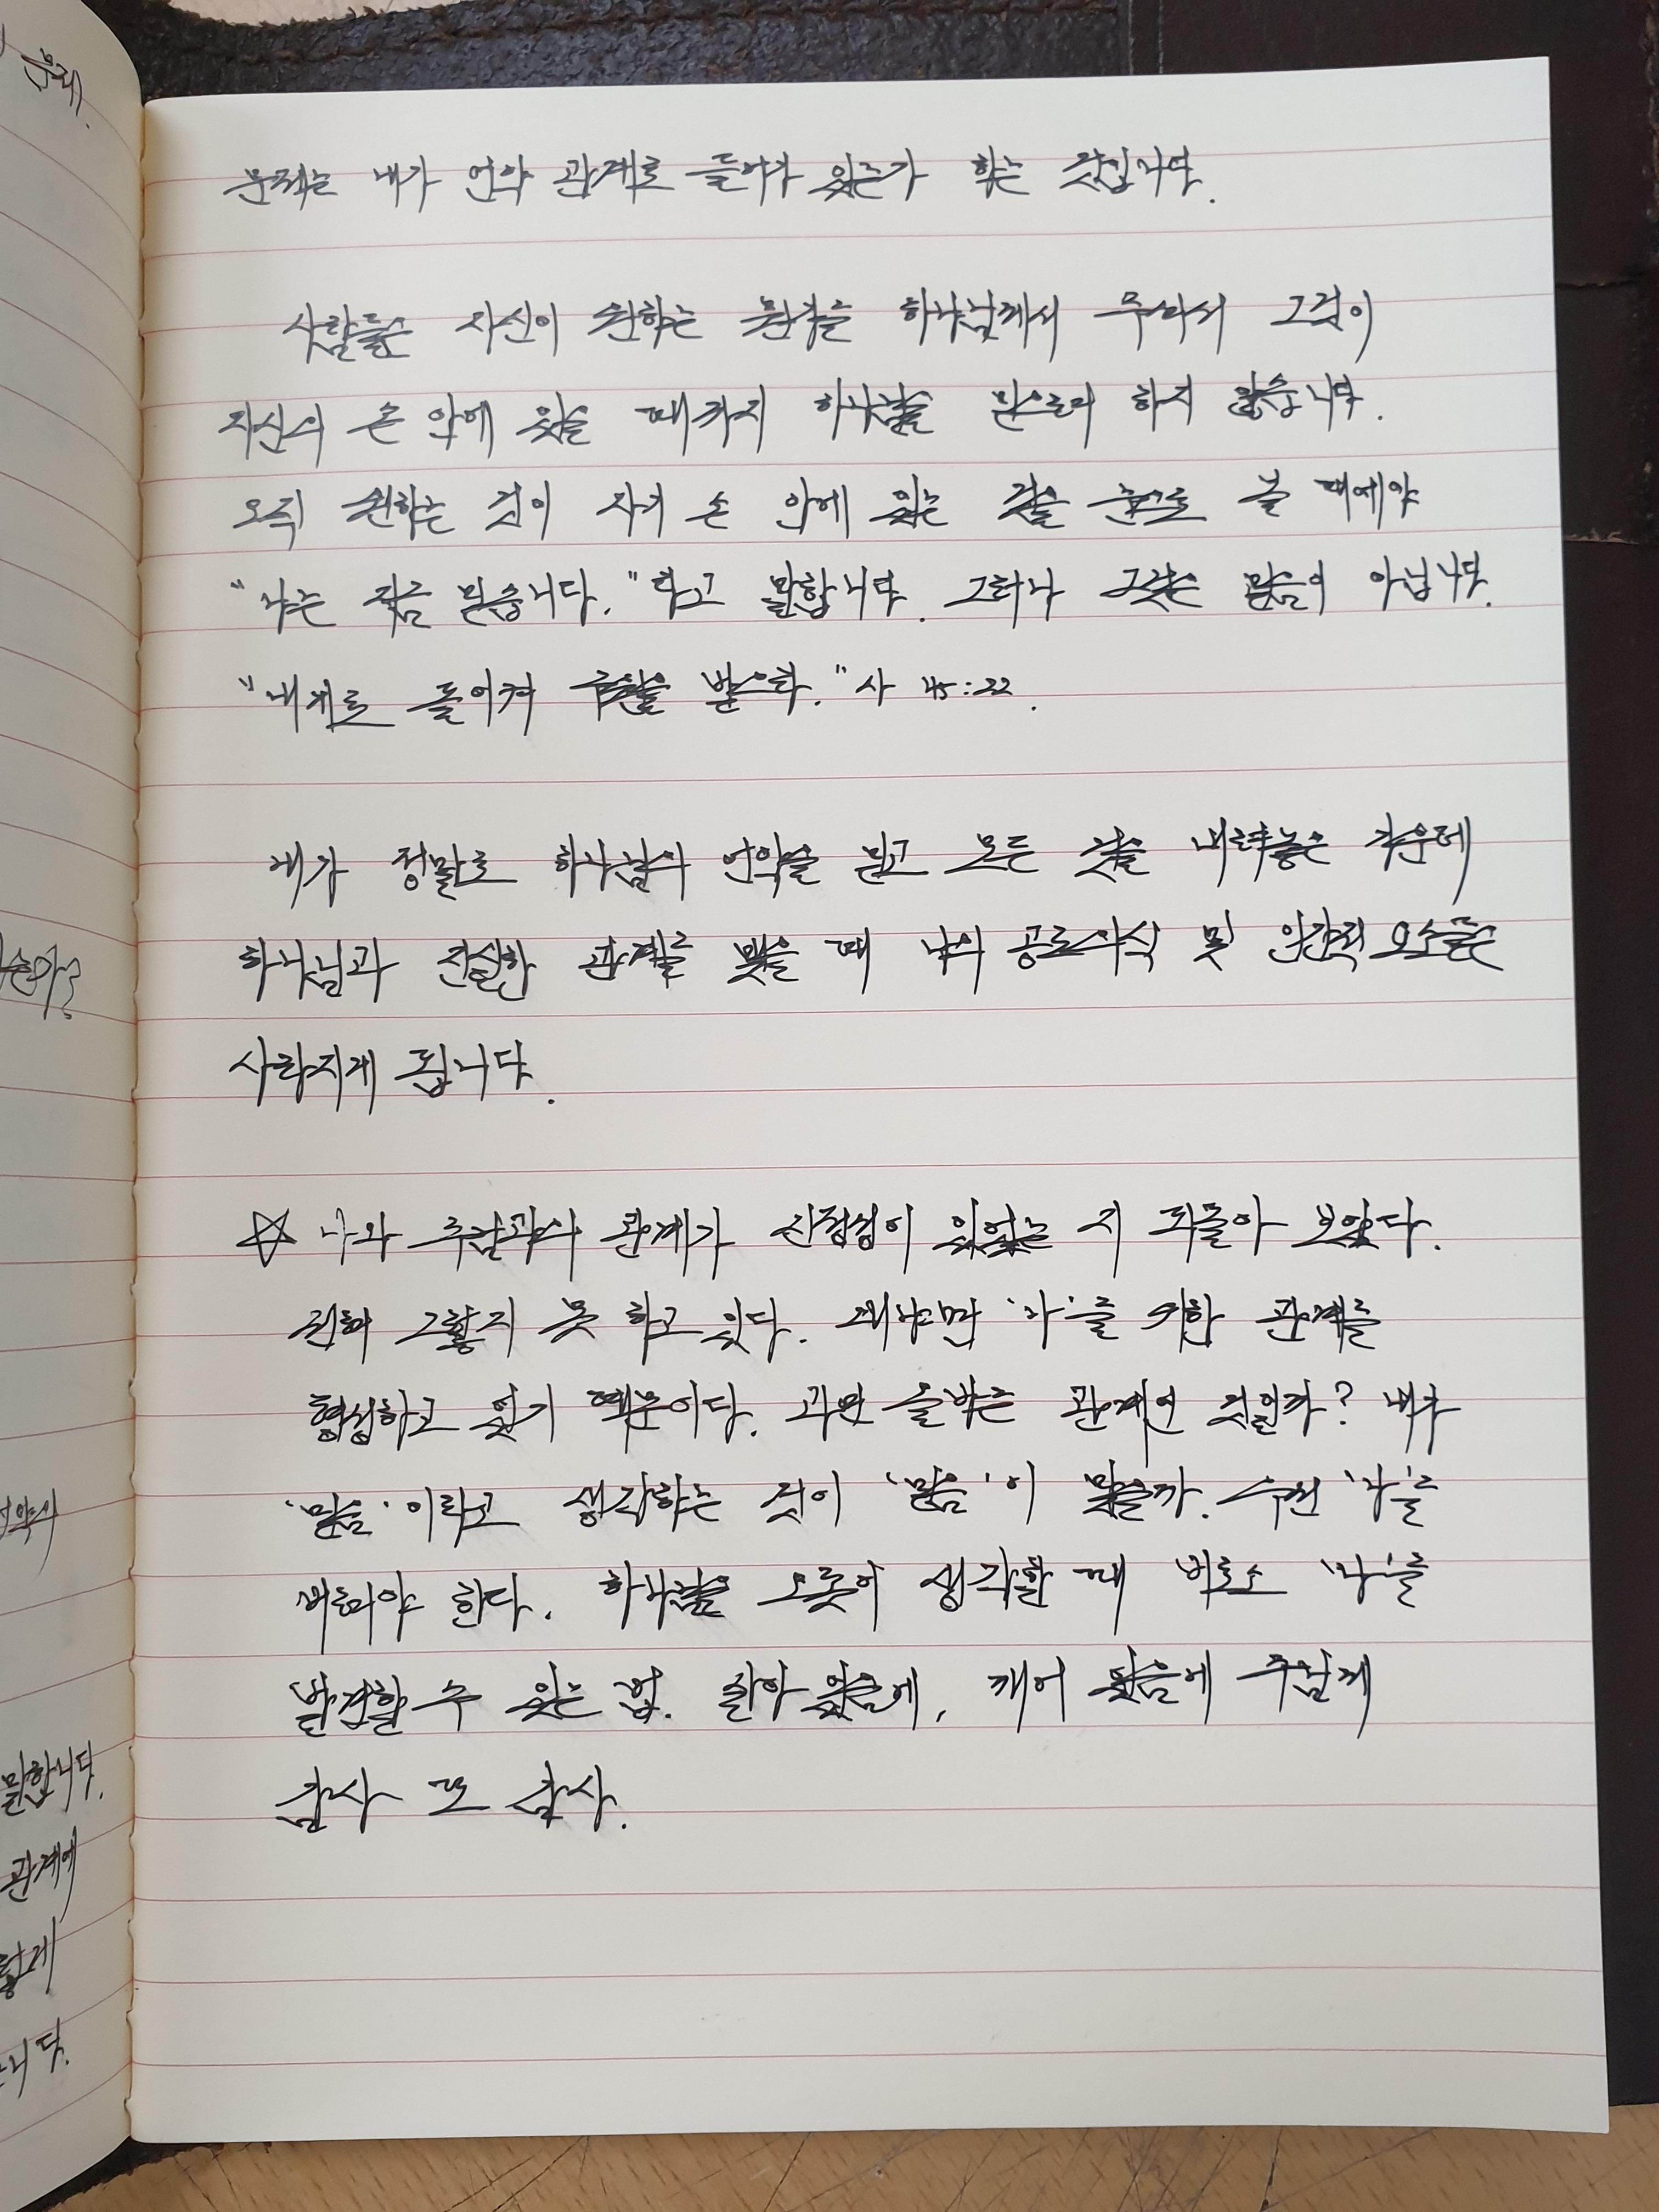 문제는 내가 언약 관계로 들어가 있는가 하는 것입니다.
사람들은 자신이 원하는 뭔가를 하나님께서 주셔서 그것이
자신의 손 안에 있을 때까지 하나님을 믿으려 하지 않습니다.
오직 원하는 것이 자기 손 안에 있는 것을 눈으로 볼 때에야
"나는 지금 믿습니다." 라고 말합니다. 그러나 그것은 믿음이 아닙니다.
"내게로 돌이켜 구원을 받으라." 사 45:22.
내가 정말로 하나님의 언약을 믿고 모든 것을 내려놓은 가운데
하나님과 진실한 관계를 맺을 때 나의 공로의식 및 인간적 요소들은
사라지게 됩니다.
☆ 나와 주님과의 관계가 진정성이 있었는 지 되돌아 보았다.
전혀 그렇지 못 하고 있다. 왜냐면 '나'를 위한 관계를
형성하고 있기 때문이다. 과연 올바른 관계인 것일까? 내가
'믿음' 이라고 생각하는 것이 '믿음' 이 맞을까. 우선 '나'를
버려야 한다. 하나님을 오롯이 생각할 때 비로소 '나'를
발견할 수 있는 법. 살아 있음에, 깨어 있음에 주님께
감사 또 감사.
문제.
는가?
언약의
말합니다.
관계에
렇게
니다.